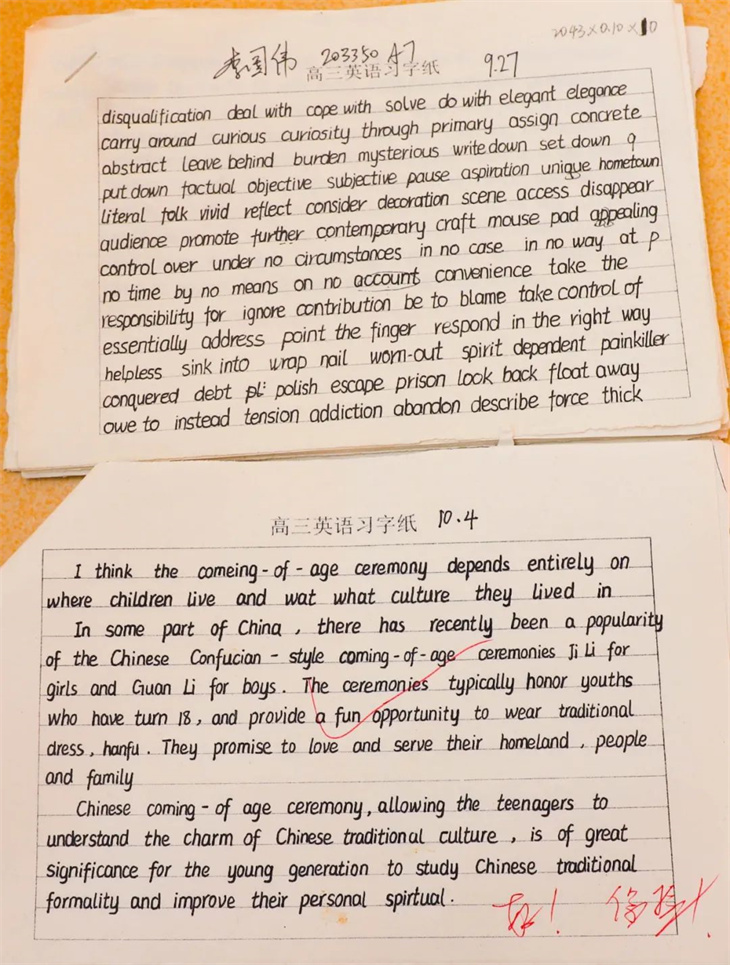 2093×0.10×10
李国伟 203350 A7
高三英语习字纸 9.27
disqualification deal with cope with solve do with elegant elegance
carry around curious curiosity through primary assign concrete
abstract leave behind burden mysterious write down set down q
put down factual objective subjective pause aspiration unique hometown
literal folk vivid reflect consider decoration scene access disappear
audience promote further contemporary craft mouse pad appealing
control over under no circumstances in no case in no way at p
no time by no means on no account convenience take the
responsibility for ignore contribution be to blame take control of
essentially address point the finger respond in the right way
helpless sink into wrap nail worn-out spirit dependent painkiller
conquered debt pl polish escape prison look back float away
owe to instead tension addiction abandon describe force thick
高三英语习字纸 10.4
I think the comeing-of-age ceremony depends entirely on
where children live and wat what culture they lived in
In some part of China, there has recently been a popularity
of the Chinese Confucian-style coming-of-age ceremonies Ji Li for
girls and Guan Li for boys. The ceremonies typically honor youths
who have turn 18, and provide a fun opportunity to wear traditional
dress, hanfu. They promise to love and serve their homeland, people
and family
Chinese coming-of age ceremony, allowing the teenagers to
understand the charm of Chinese traditional culture, is of great
significance for the young generation to study Chinese traditional
formality and improve their personal spirtual.
好!